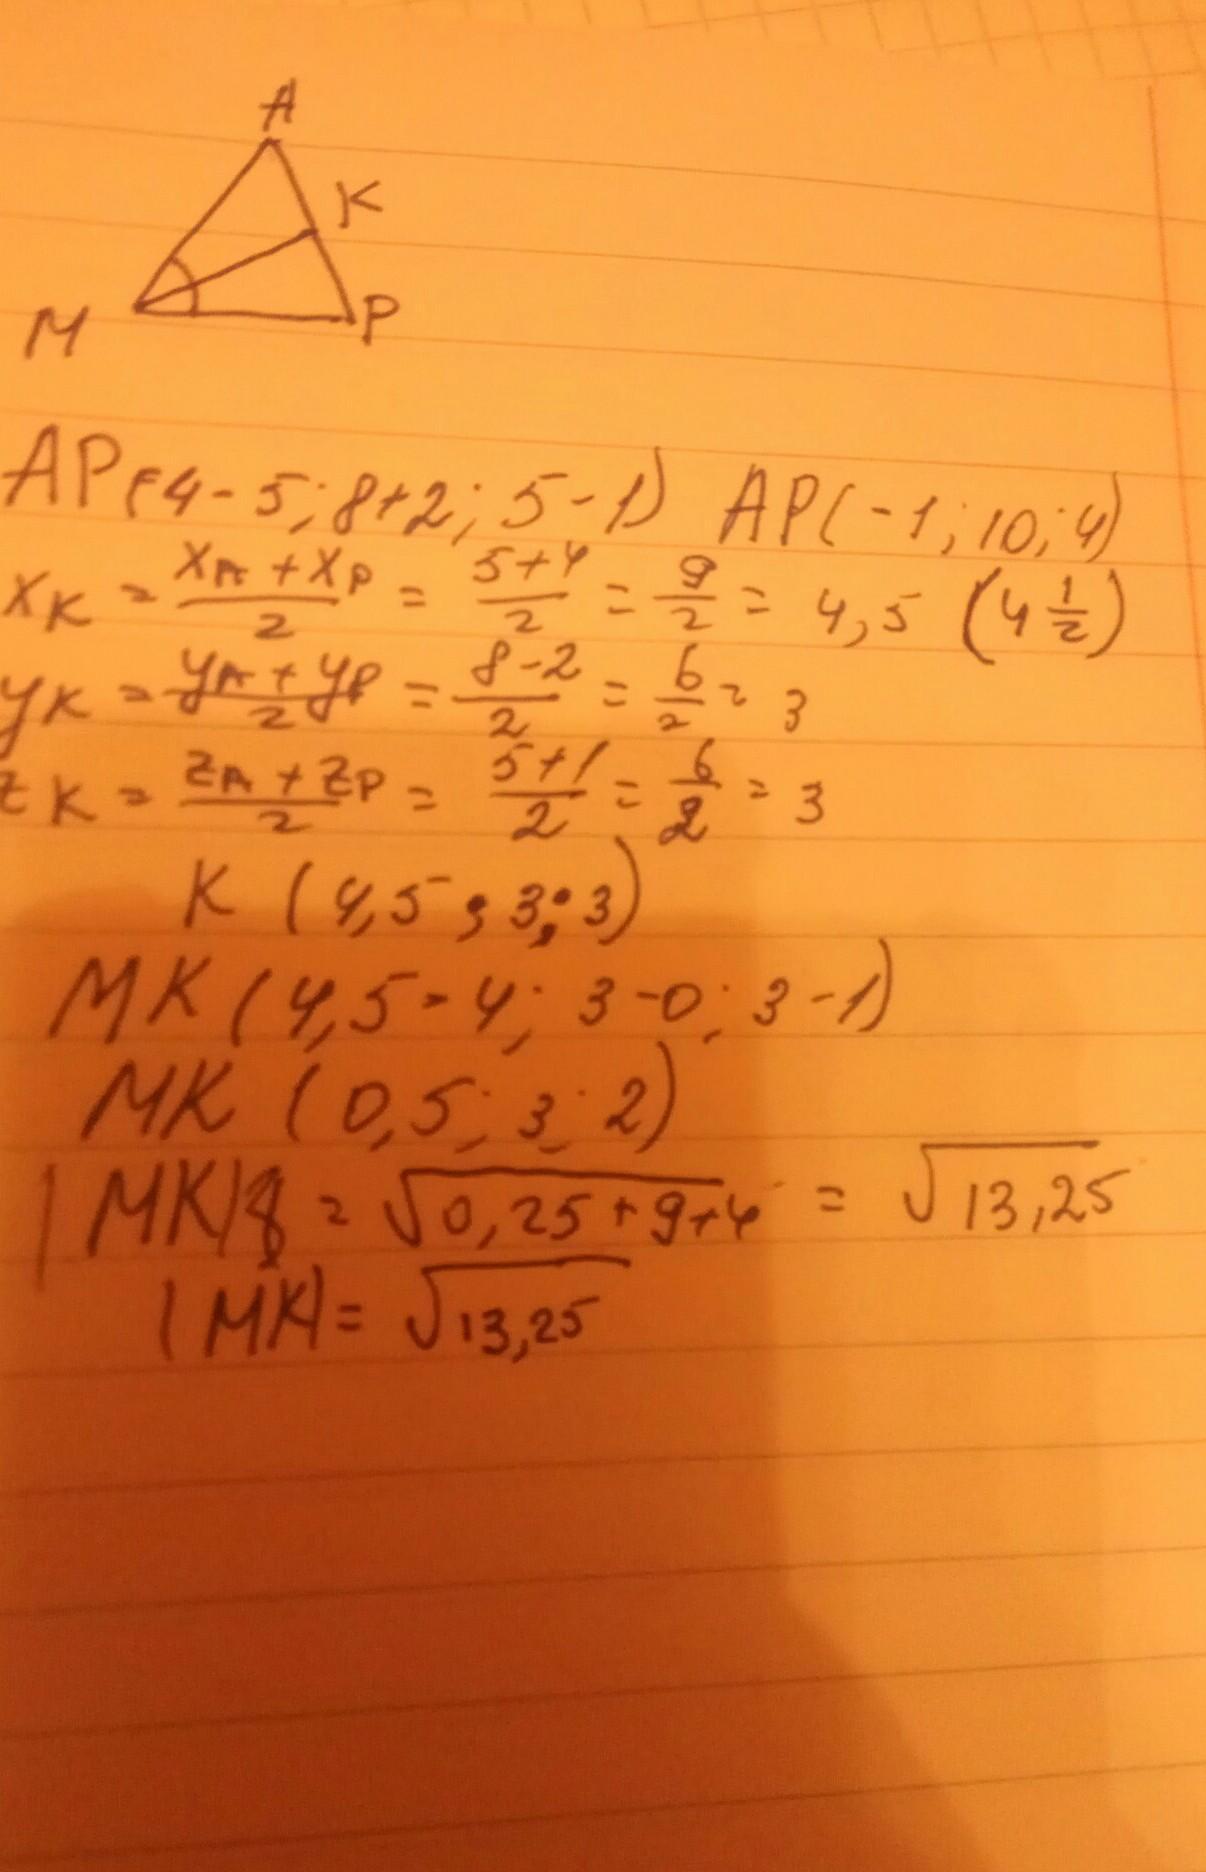 A
K
M
P
AP(4-5; 8+2; 5-1) AP(-1; 10; 4)
xK = (xA + xP)/2 = (5+4)/2 = 9/2 = 4,5 (4 1/2)
yK = (yA + yP)/2 = (8-2)/2 = 6/2 = 3
zK = (zA + zP)/2 = (5+1)/2 = 6/2 = 3
K (4,5; 3; 3)
MK (4,5-4; 3-0; 3-1)
MK (0,5; 3; 2)
|MK| = √0,25+9+4 = √13,25
|MK| = √13,25